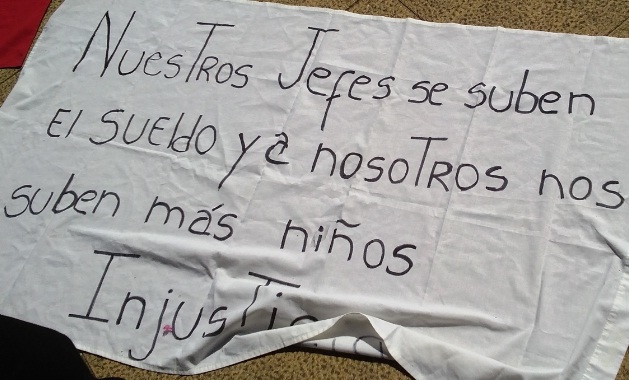 Nuestros Jefes se suben
El SUEldo y a nosotros nos
suben más niños
Injusticia